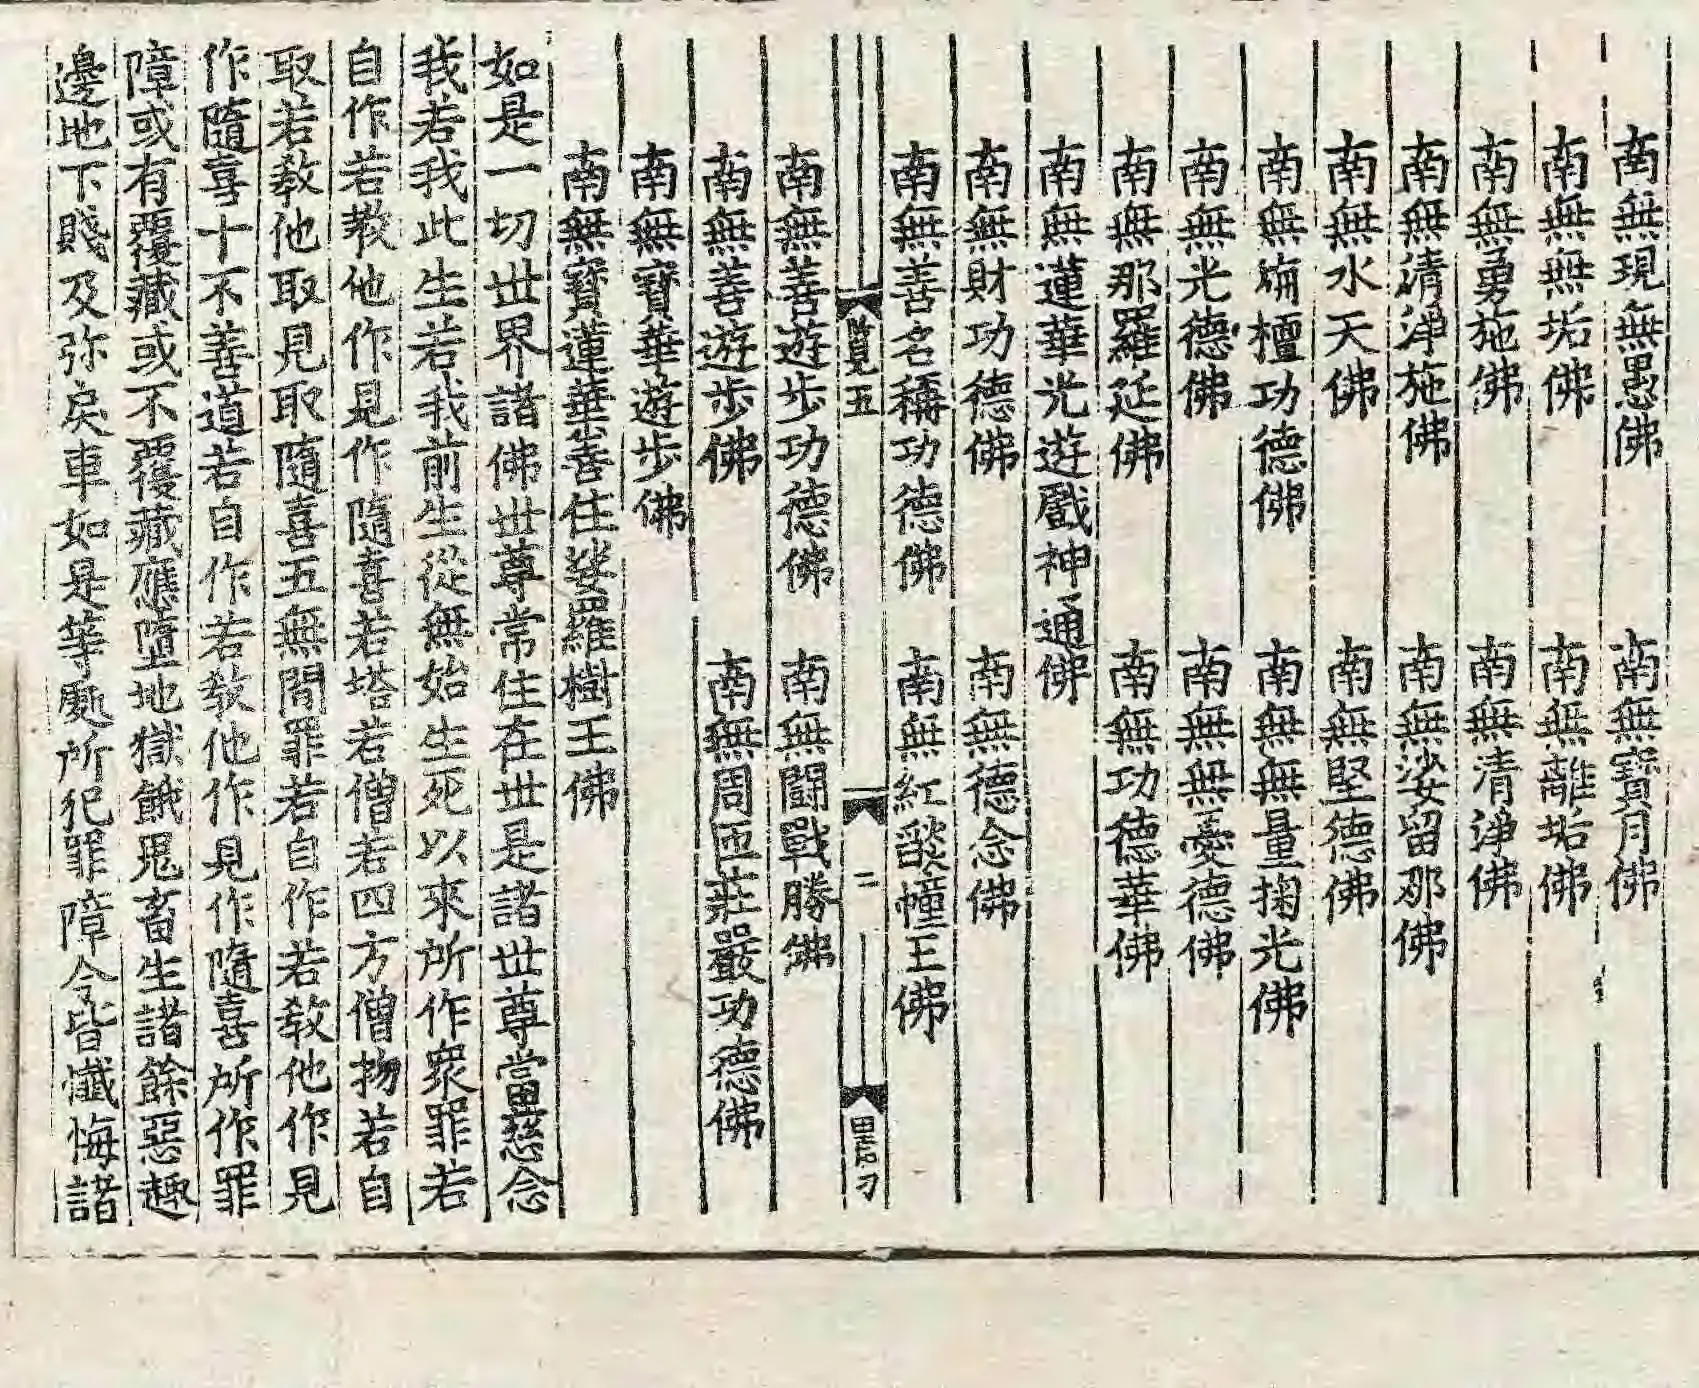 南無現無愚佛　南無寶月佛
南無無垢佛　南無離垢佛
南無勇施佛　南無清淨佛
南無清淨施佛　南無娑留那佛
南無水天佛　南無堅德佛
南無旃檀功德佛　南無無量掬光佛
南無光德佛　南無無憂德佛
南無那羅延佛　南無功德華佛
南無蓮華光遊戲神通佛
南無財功德佛　南無德念佛
南無善名稱功德佛　南無紅燄幢王佛
覽五　二　刁
南無善遊步功德佛　南無鬪戰勝佛
南無善遊步佛　南無周匝莊嚴功德佛
南無寶華遊步佛
南無寶蓮華善住娑羅樹王佛
如是一切世界諸佛世尊常住在世是諸世尊當慈念
我若我此生若我前生從無始生死以來所作衆罪若
自作若教他作見作隨喜若塔若僧若四方僧物若自
取若教他取見取隨喜五無間罪若自作若教他作見
作隨喜十不善道若自作若教他作見作隨喜所作罪
障或有覆藏或不覆藏應墮地獄餓鬼畜生諸餘惡趣
邊地下賤及弥戾車如是等處所犯罪障今皆懺悔諸